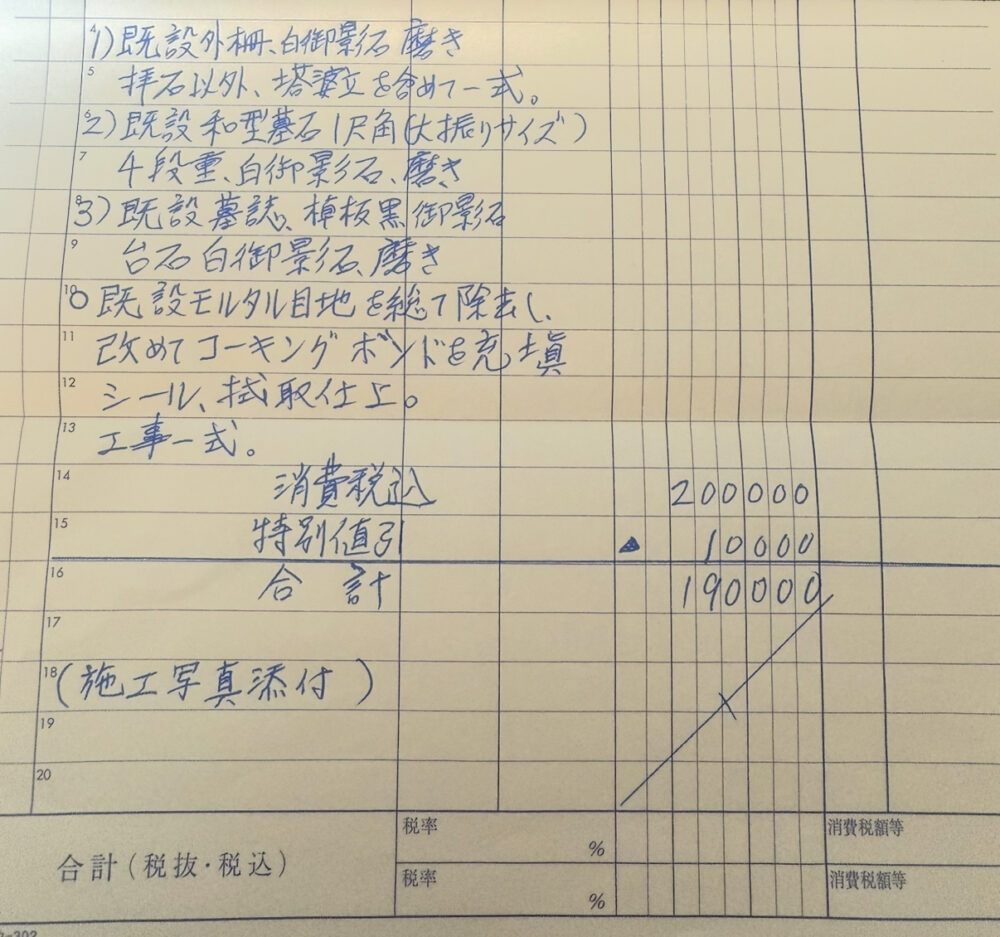 4 1)既設外柵、白御影石 磨き
5 拝石以外、塔婆立を含めて一式。
6 2)既設和型墓石1尺角(大振りサイズ)
7 4段重、白御影石、磨き
8 3)既設墓誌、棹板黒御影石
9 台石白御影石、磨き
10 ○既設モルタル目地を総て除去し、
11 改めてコーキングボンドを充填
12 シール、拭取仕上。
13 工事一式。
14 消費税込 200000
15 特別値引 ▲ 10000
16 合計 190000
17
18 (施工写真添付)
19
20
税率 % 消費税額等
合計(税抜・税込)
税率 % 消費税額等